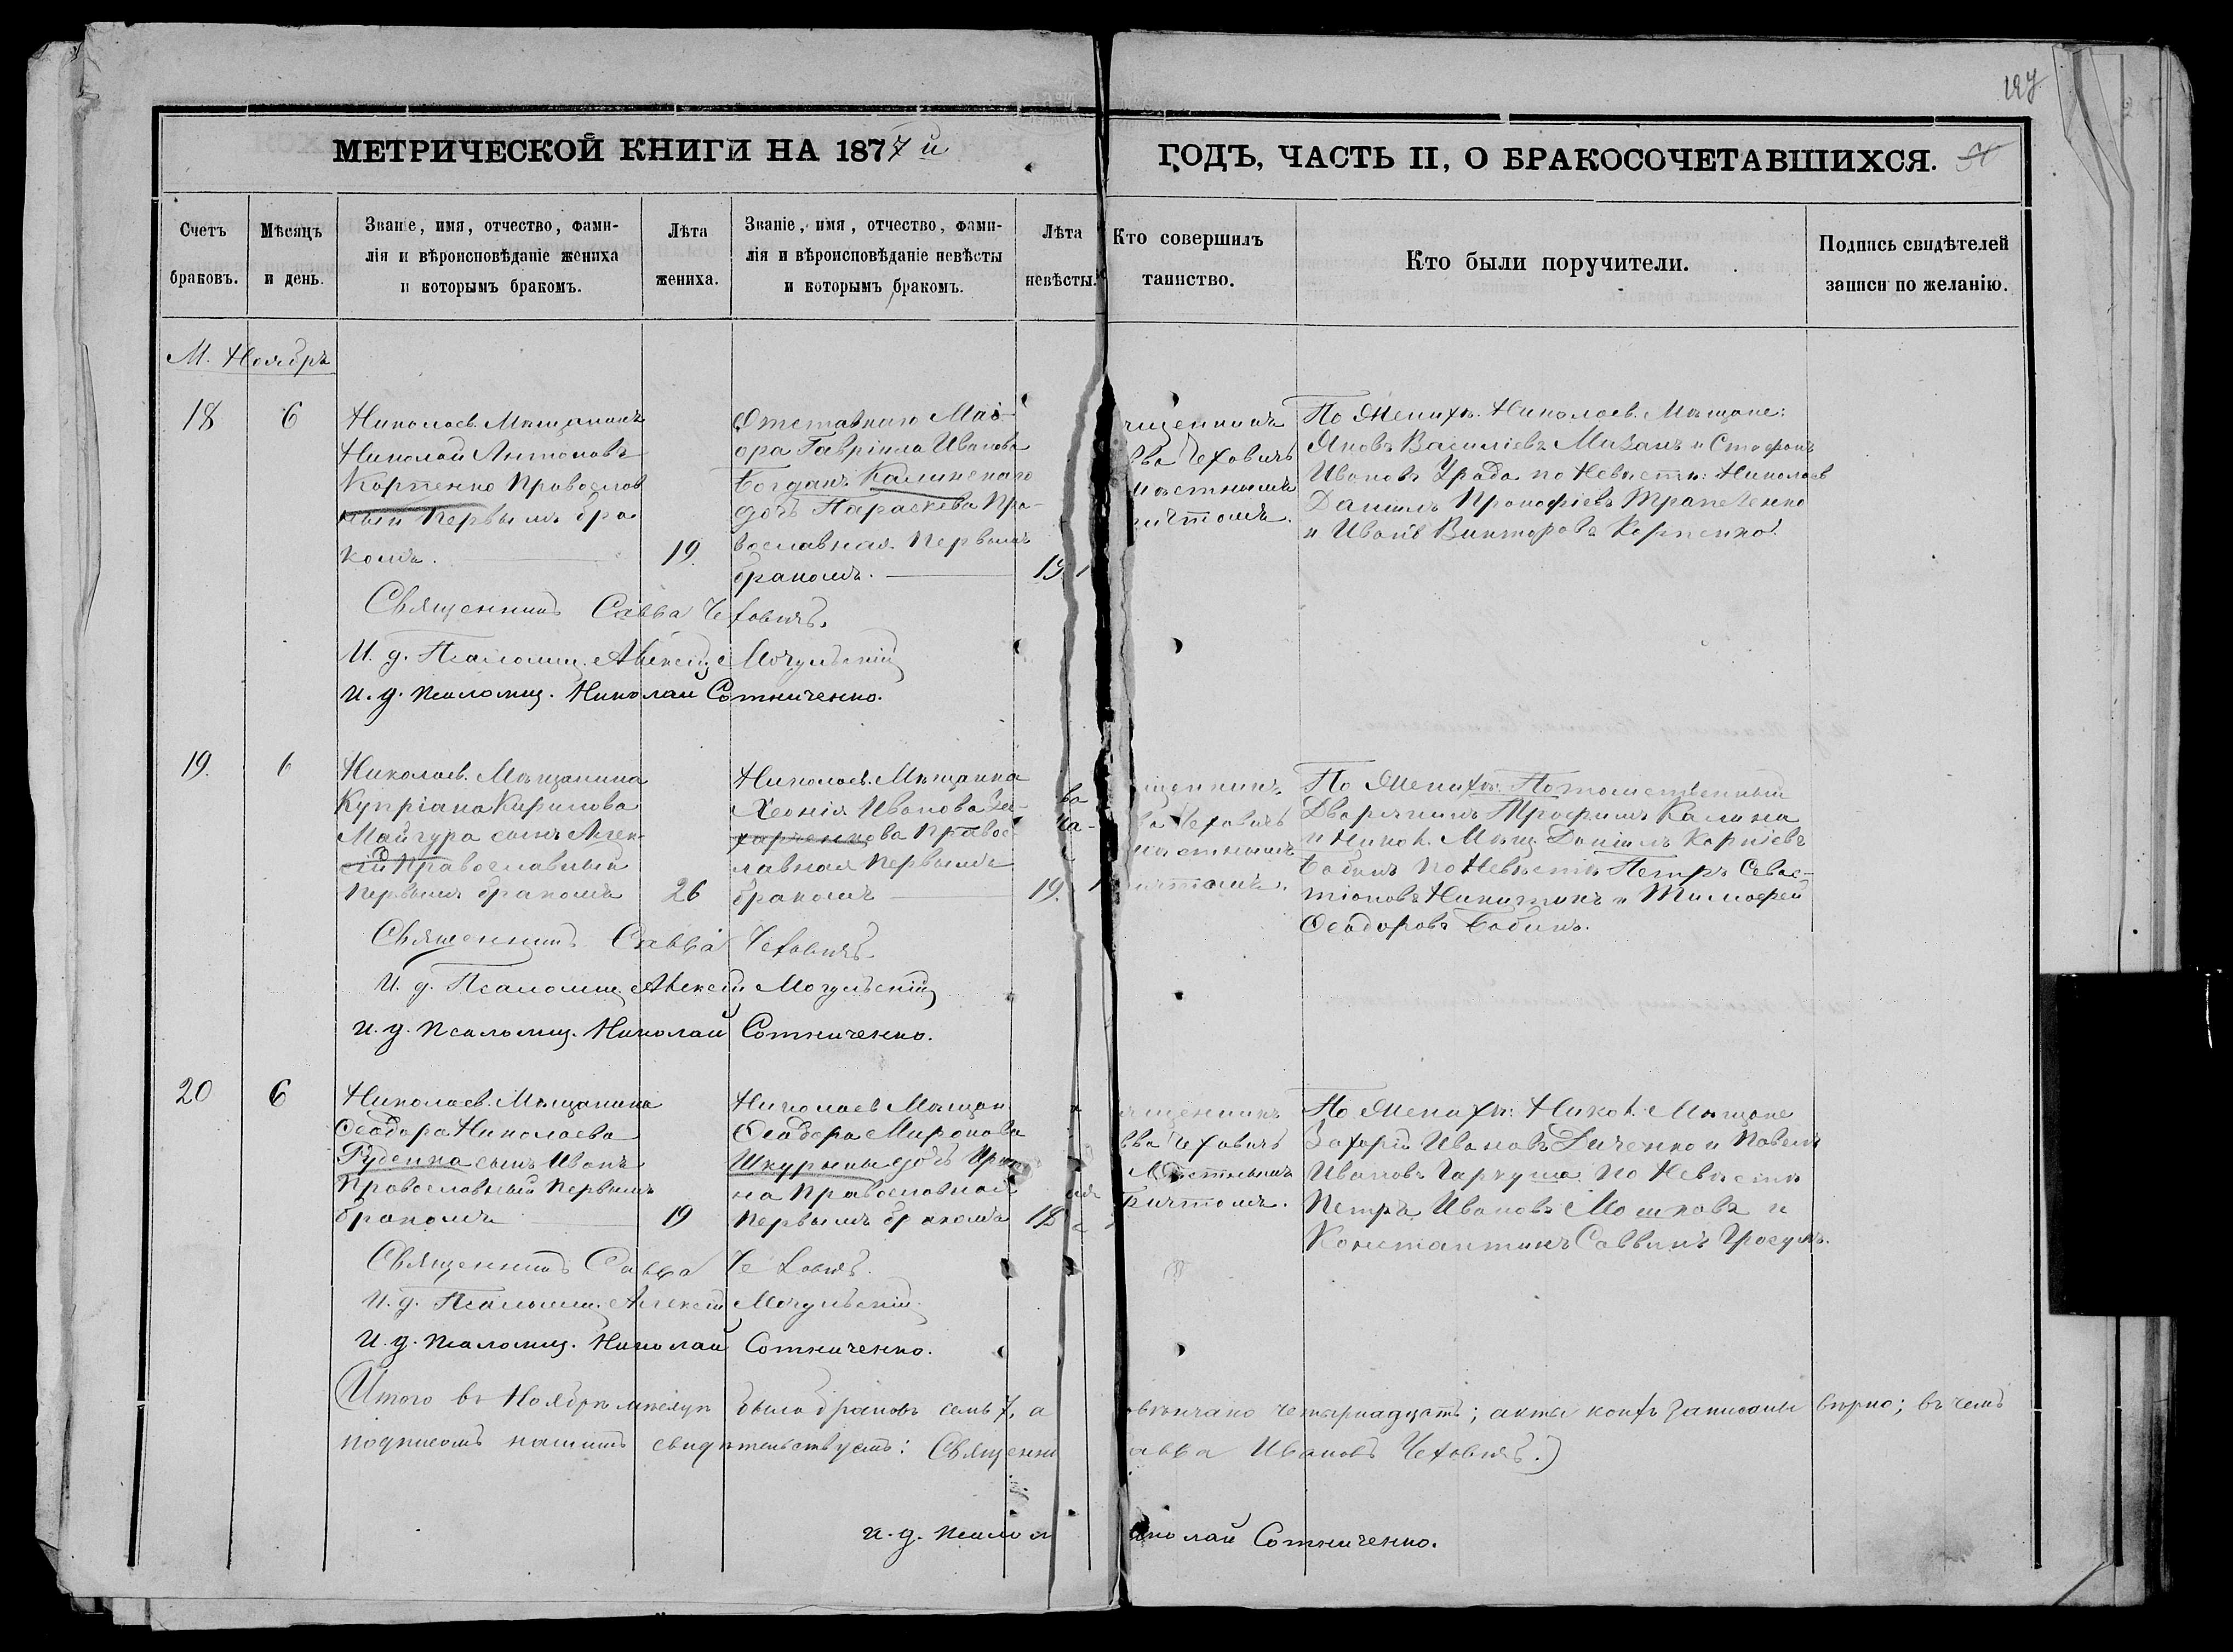 127
МЕТРИЧЕСКОЙ КНИГИ НА 1877й
ГОДЪ, ЧАСТЬ II, О БРАКОСОЧЕТАВШИХСЯ.
Счетъ
браковъ.
Мѣсяцъ
и день.
Званіе, имя, отчество, фами-
лія и вѣроисповѣданіе жениха
и которымъ бракомъ.
Лѣта
жениха.
Званіе, имя, отчество, фами-
лія и вѣроисповѣданіе невѣсты
и которымъ бракомъ.
Лѣта
невѣсты.
Кто совершилъ
таинство.
Кто были поручители.
Подпись свидѣтелей
записи по желанію.
М. Ноябрь
18
6
Николаев. Мѣщанинъ
Николай Антоновъ
Корпенко Православ
ный первымъ бра
комъ.
19.
Отставнаго Маі-
ора Гавріила Иванова
Богдан. Калинскаго
дочь Параскева Пра-
вославная первымъ
бракомъ.
19
щенникъ
ва Чеховичъ
мѣстнымъ
ичтомъ.
По Женихѣ: Николаев. Мѣщане:
Яковъ Василіевъ Мазанъ и Стефанъ
Ивановъ Урада по Невѣстѣ: Николаев
Даніилъ Прокофіевъ Трапезенко
и Иванъ Викторовъ Корпенко.
Священникъ Савва Чеховичъ.
И. д. Псаломщ. Алексѣй Мочульскій
и. д. псаломщ. Николай Сотниченко.
19.
6
Николаев. Мѣщанина
Купріана Кирилова
Майгура сынъ Алек-
сій Православный
первымъ бракомъ
26
Николаев. Мѣщанка
Хеонія Иванова За-
харченкова Правос-
лавная первымъ
бракомъ
19.
щенникъ
ва Чеховичъ
мѣстнымъ
ичтомъ.
По Женихѣ: Потомственный
Дворянинъ Трофимъ Калина
и Никол. Мѣщ. Даніилъ Корніевъ
Бабинъ по Невѣстѣ Петръ Севас-
тіановъ Никитинъ и Тимофей
Ѳеодоровъ Бабинъ.
Священникъ Савва Чеховичъ
И. д. Псаломщ. Алексѣй Мочульскій
и. д. псаломщ. Николай Сотниченко.
20
6
Николаев. Мѣщанина
Ѳеодора Николаева
Руденка сынъ Иванъ
Православный первымъ
бракомъ
19
Николаев Мѣщан
Ѳеодора Миронова
Шкурыны дочь Ири
на Православная
первымъ бракомъ
18
щенникъ
вва Чеховичъ
Мѣстнымъ
Причтомъ.
По Женихѣ: Никол. Мѣщане
Захарій Ивановъ Диченко и Павелъ
Ивановъ Гаркуша по Невѣстѣ
Петръ Ивановъ Мошковъ и
Константинъ Саввинъ
Священникъ Савва Чеховичъ.
И. д. Псаломщ. Алексѣй Мочульскій
и. д. псаломщ. Николай Сотниченко.
(Итого въ Ноябрѣ мѣсяцѣ было браковъ семь 7, а вѣнчано четырнадцать; акты коихъ записаны вѣрно; въ чемъ
подписомъ нашимъ свидѣтельствуемъ: Священни авва Ивановъ Чеховичъ.)
и. д. псалом иколай Сотниченко.